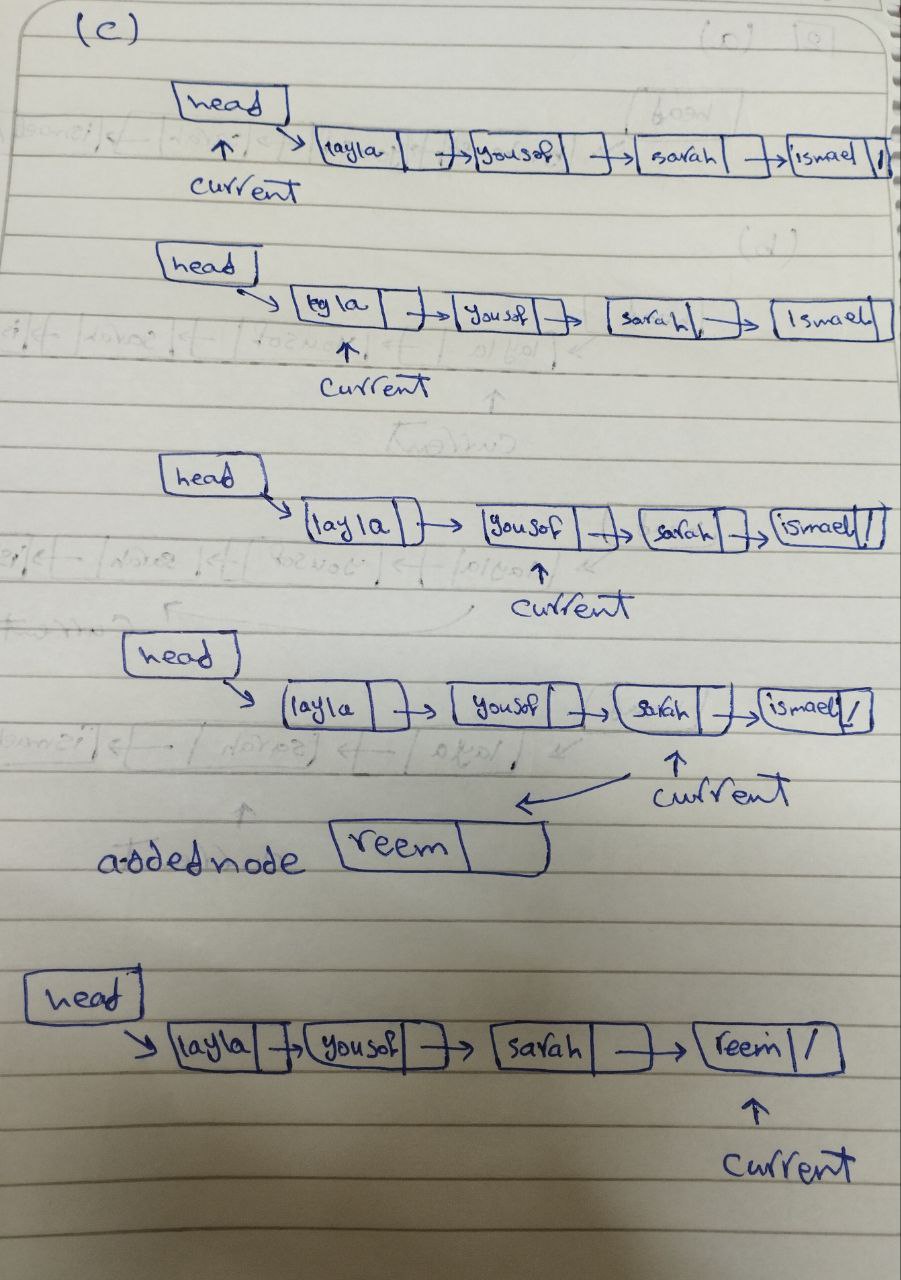 (c)
head
layla yousof sarah ismael /
current
head
layla yousof sarah ismael
current
head
layla yousof sarah ismael /
current
head
layla yousof sarah ismael /
current
added node reem
head
layla yousof sarah reem /
current